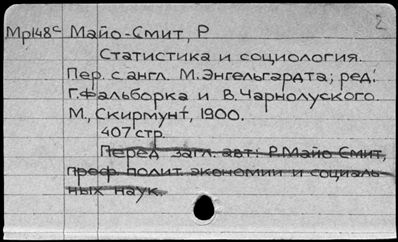 2
Мр148с Майо-Смит, Р
Статистика и социология.
Пер. с англ. М. Энгельгардта; ред.:
Г. Фальборка и В. Чарнолуского.
М., Скирмунт, 1900.
407 стр.
Перед загл. авт: Р. Майо Смит,
проф. полит экономии и социаль-
ных наук.